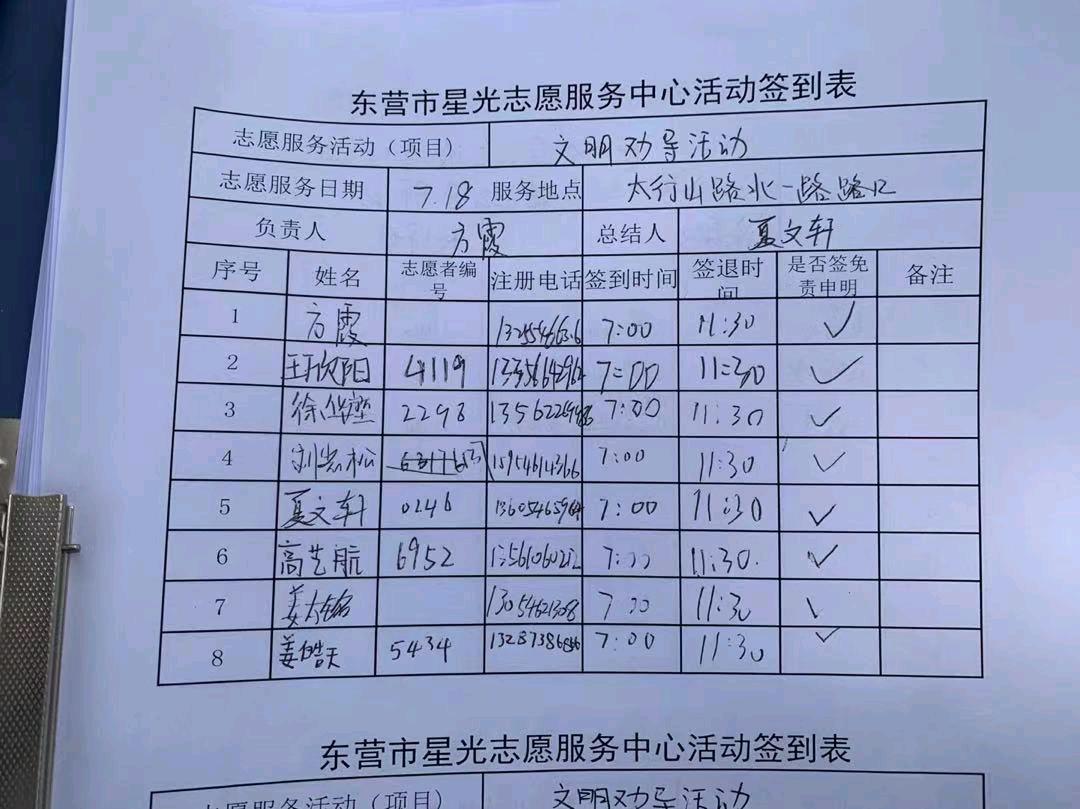 东营市星光志愿服务中心活动签到表
志愿服务活动（项目） 文明劝导活动
志愿服务日期 7.18 服务地点 太行山路北一路路口
负责人 方霞 总结人 夏文轩
序号 姓名 志愿者编号 注册电话 签到时间 签退时间 是否签免责申明 备注
1 方霞 7:00 11:30 ✓
2 王欣阳 4119 7:00 11:30 ✓
3 2298 7:00 11:30 ✓
4 15954614366 7:00 11:30 ✓
5 夏文轩 0246 7:00 11:30 ✓
6 高艺航 6952 13561060212 7:00 11:30 ✓
7 7:00 11:30 ✓
8 姜皓天 5434 7:00 11:30 ✓
东营市星光志愿服务中心活动签到表
志愿服务活动（项目） 文明劝导活动